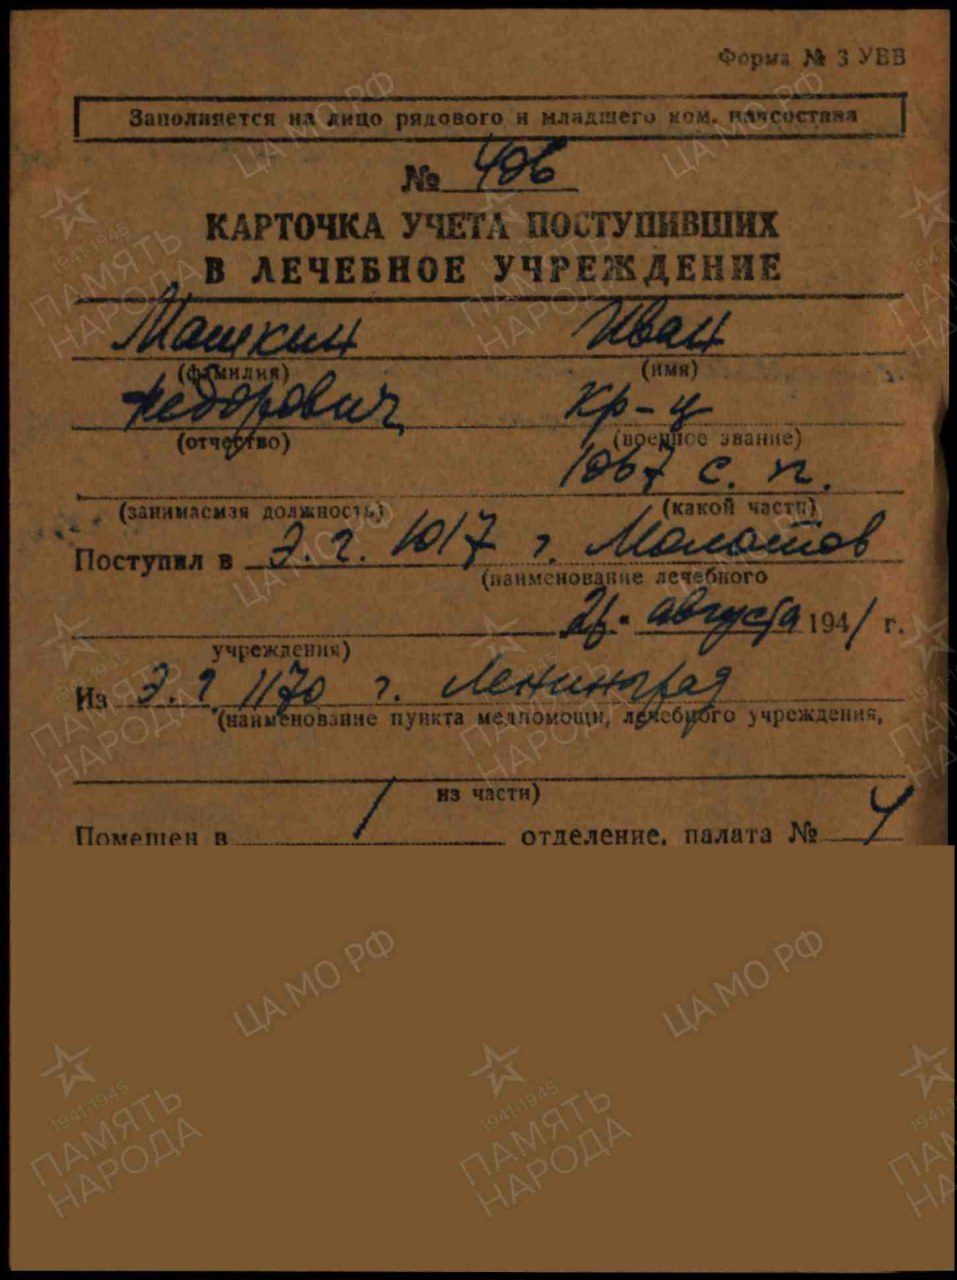 Форма № 3 УВВ
Заполняется на лицо рядового и младшего ком. начсостава
№ 406
КАРТОЧКА УЧЕТА ПОСТУПИВШИХ
В ЛЕЧЕБНОЕ УЧРЕЖДЕНИЕ
Машкин Иван
(фамилия) (имя)
Федорович кр-ц
(отчество) (военное звание)
1067 с. п.
(занимаемая должность) (какой части)
Поступил в Э. г. 1017 г. Молотов
(наименование лечебного
августа 1941 г.
учреждения)
Из Э. г. 1170 г. Ленинград
(наименование пункта медпомощи, лечебного учреждения,
из части)
Помещен в 1 отделение, палата № 4
ЦА МО РФ
ЦА МО РФ
1941-1945
ПАМЯТЬ
НАРОДА
1941-1945
ПАМЯТЬ
НАРОДА